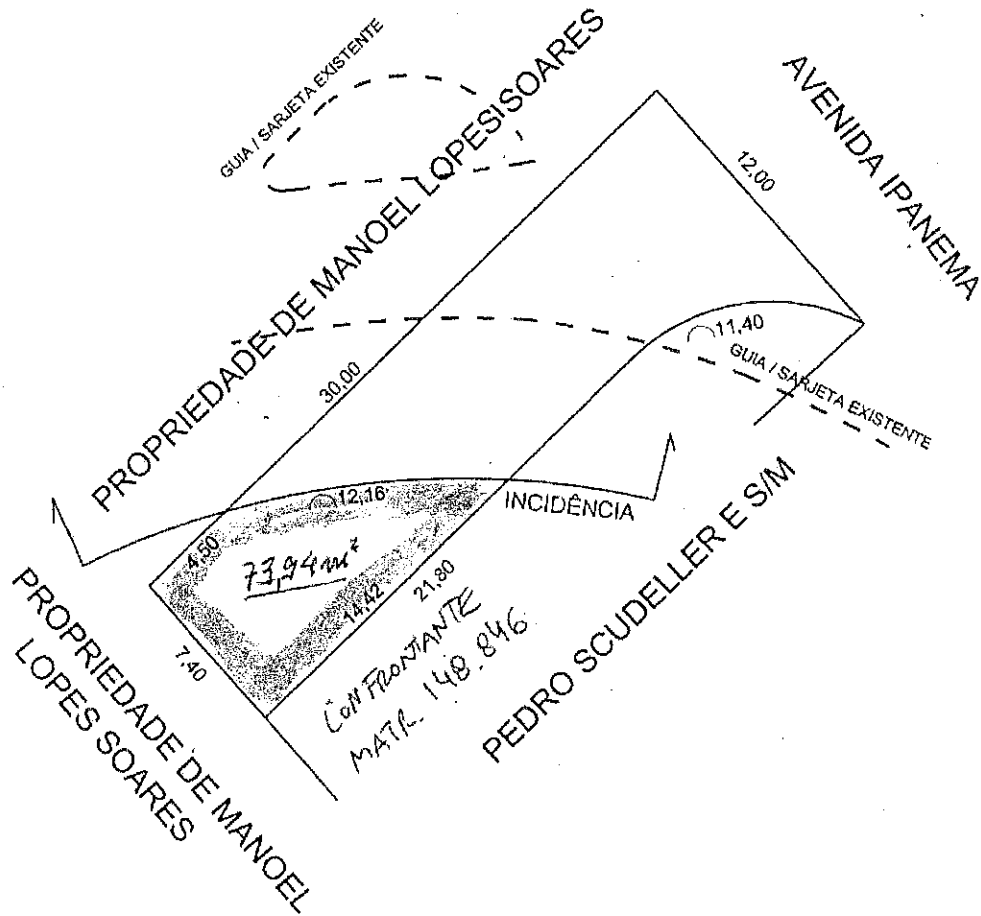 GUIA / SARJETA EXISTENTE
PROPRIEDADE DE MANOEL LOPES SOARES
AVENIDA IPANEMA
12,00
11,40
GUIA / SARJETA EXISTENTE
30,00
12,16
INCIDÊNCIA
4,50
73,94 m²
14,42
21,80
7,40
CONFRONTANTE
MATR. 148.846
PEDRO SCUDELLER E S/M
PROPRIEDADE DE MANOEL
LOPES SOARES